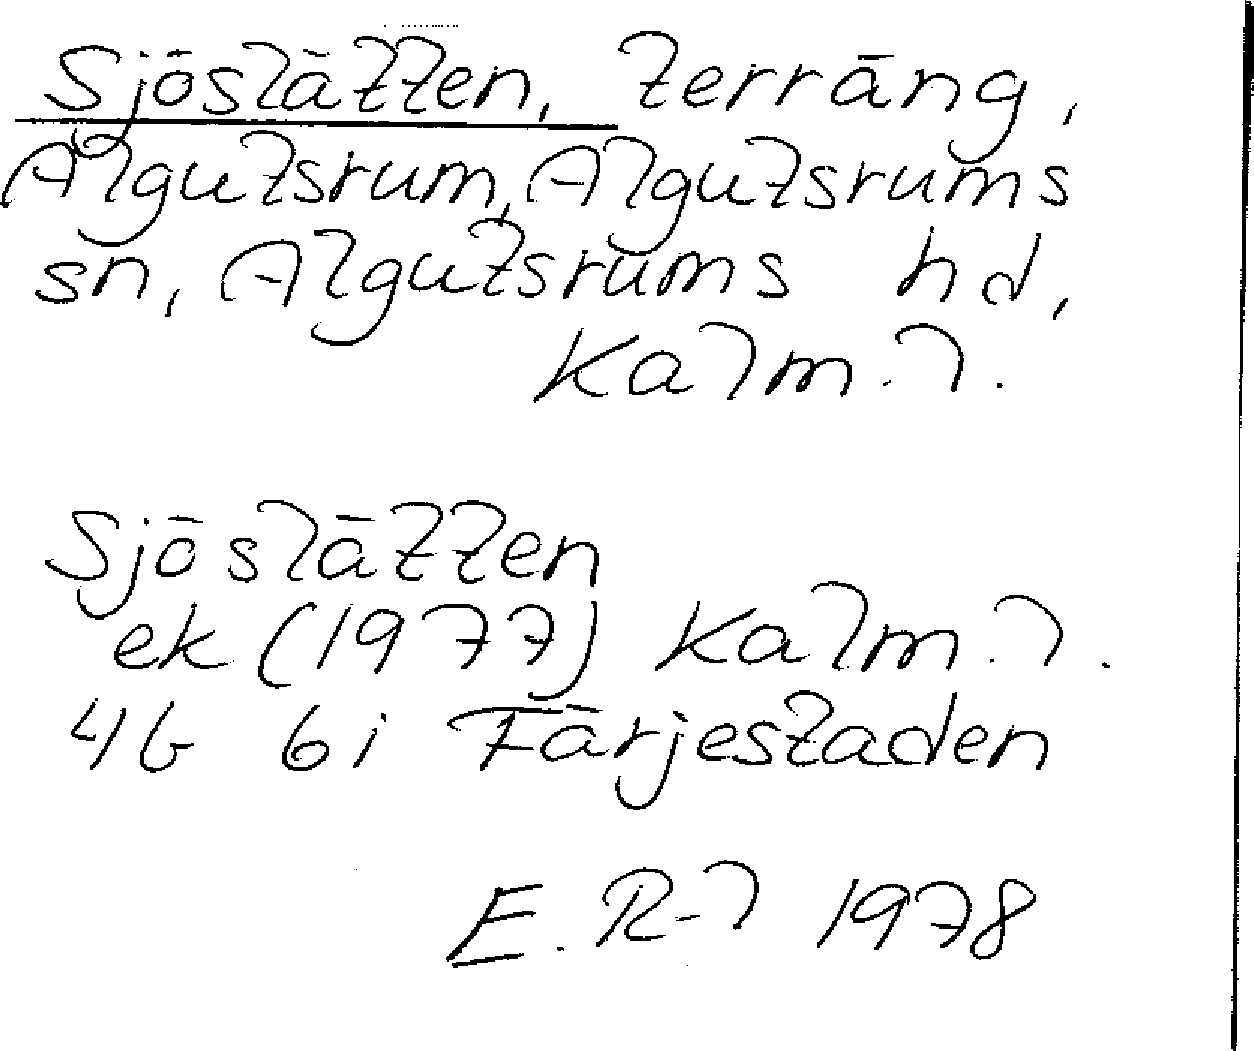 Sjöslätten, terräng,
Algutsrum, Algutsrums
sn, Algutsrums hd,
Kalm. l.
Sjöslätten
ek (1977) Kalm. l.
4G 6i Färjestaden
E. R-l 1978